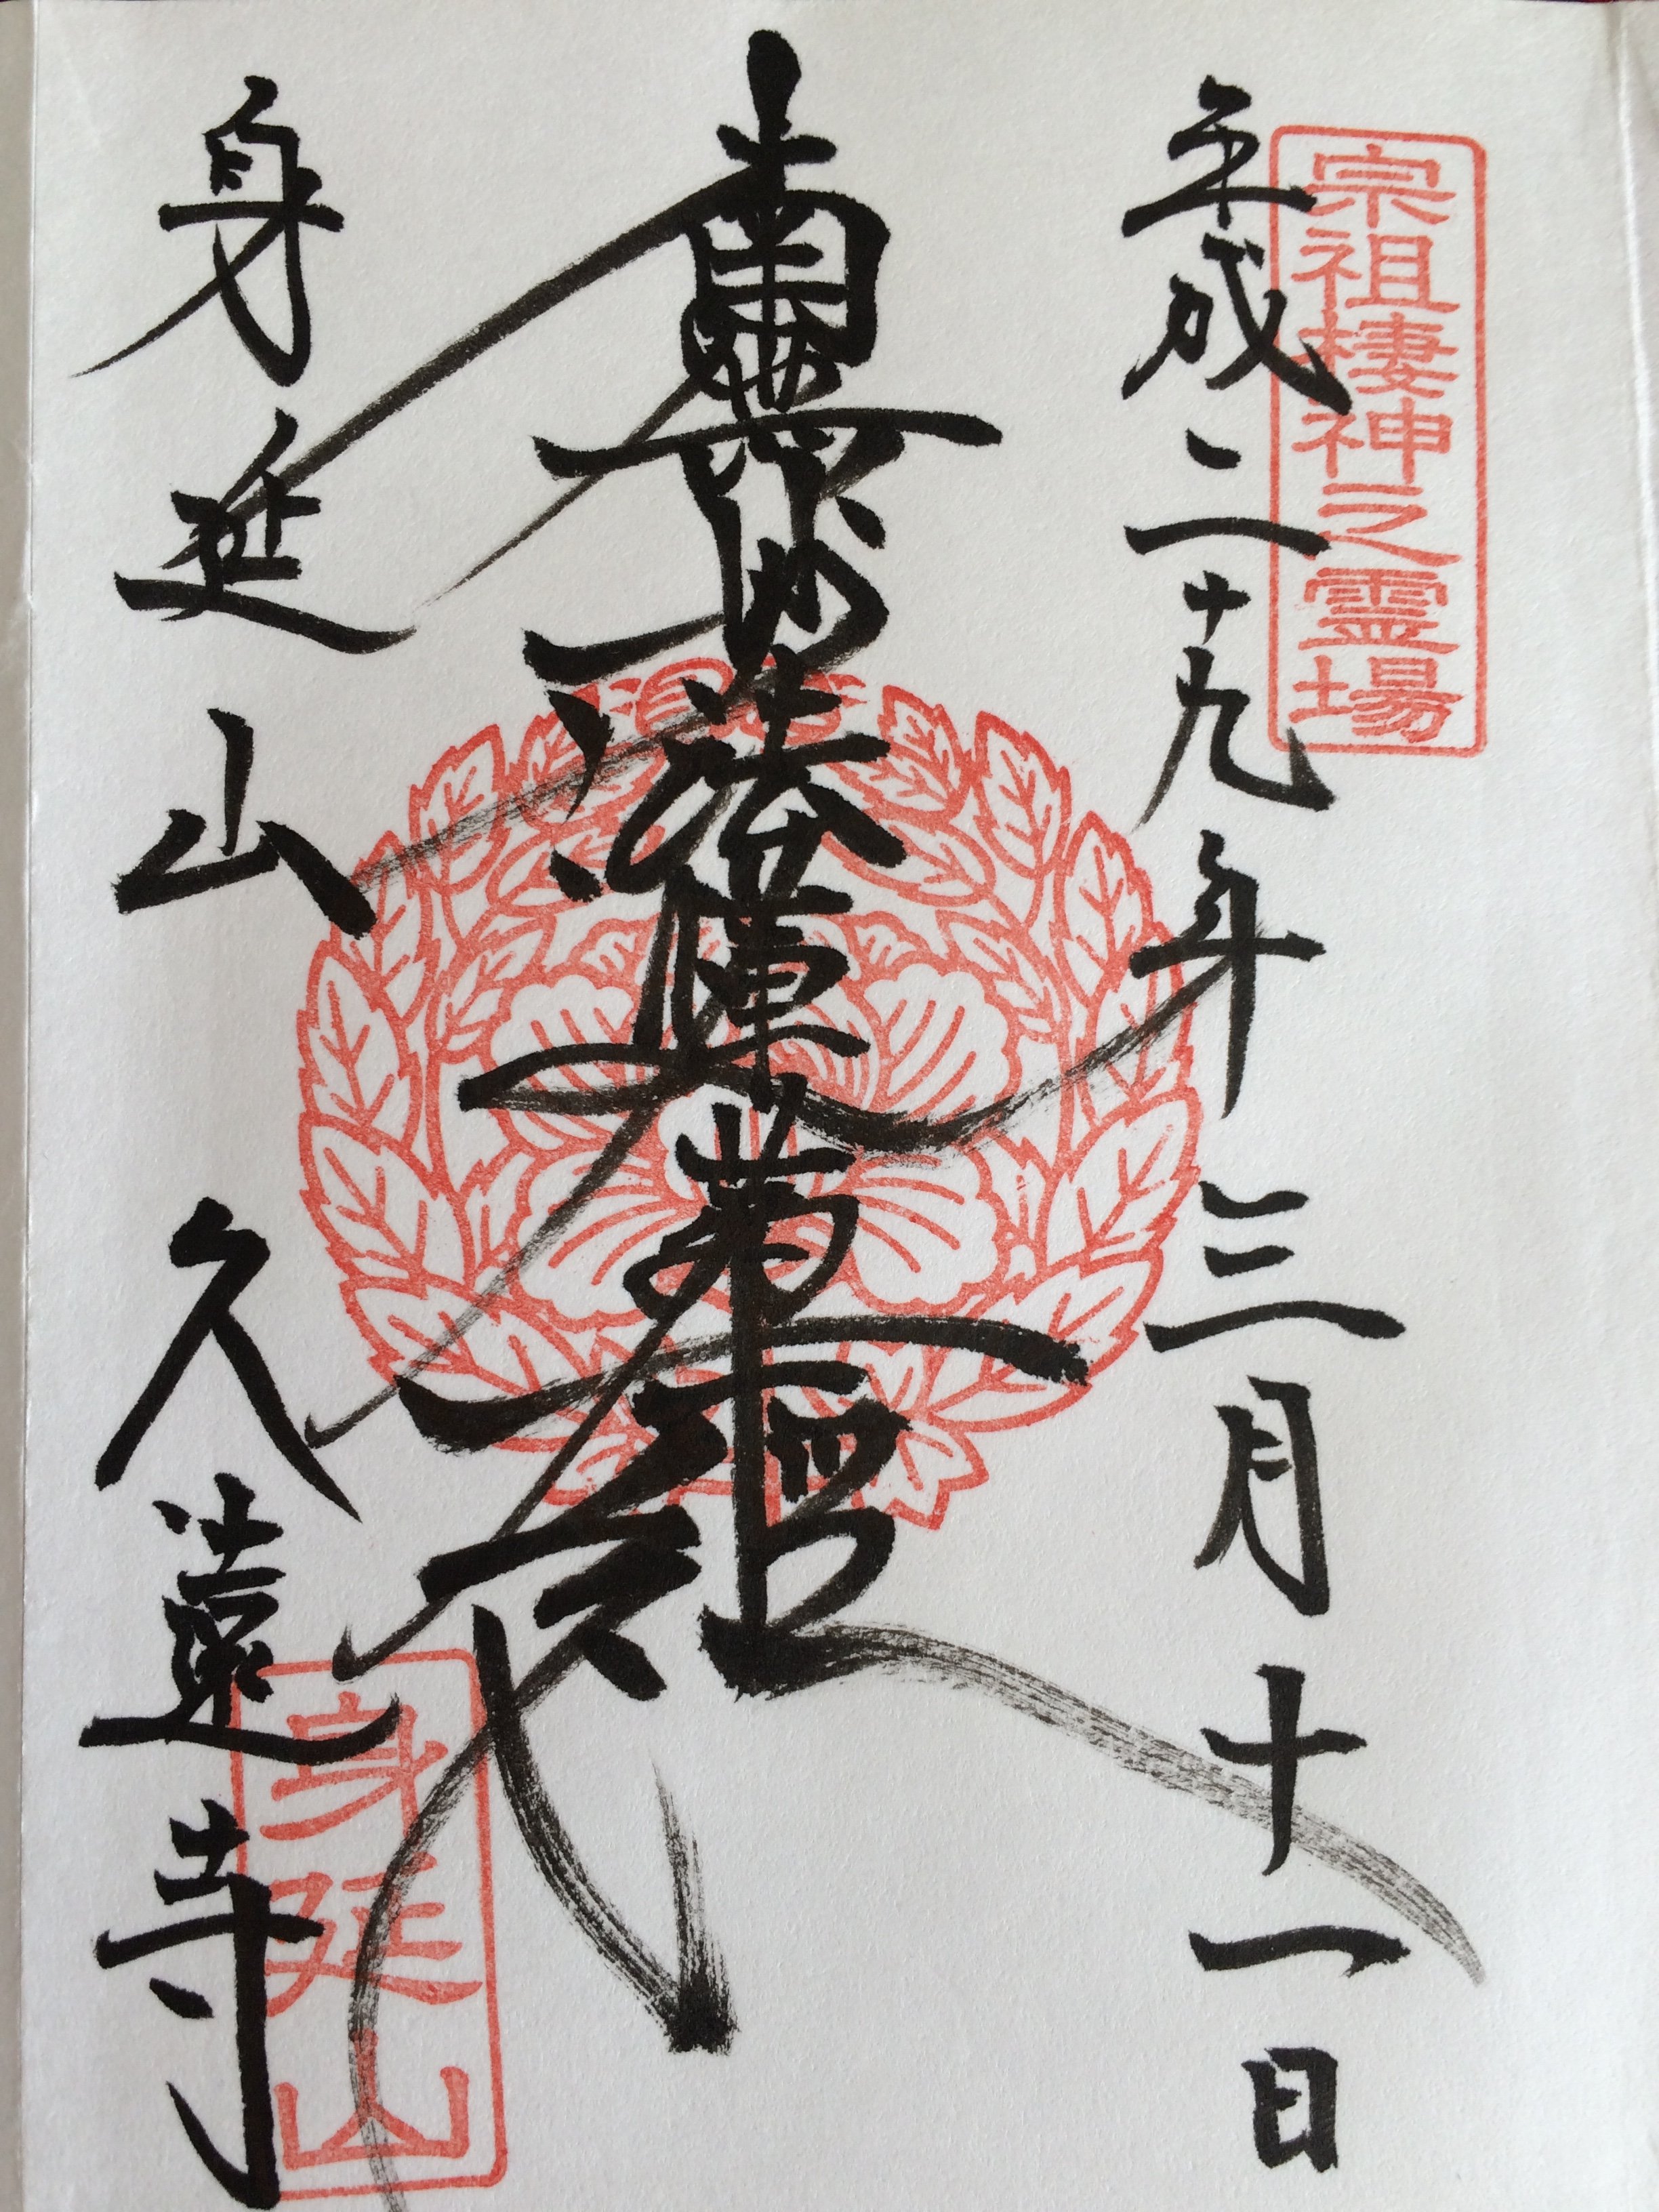 宗祖棲神之霊場
平成二十九年三月十一日
南無妙法蓮華経
身延山久遠寺
身延山